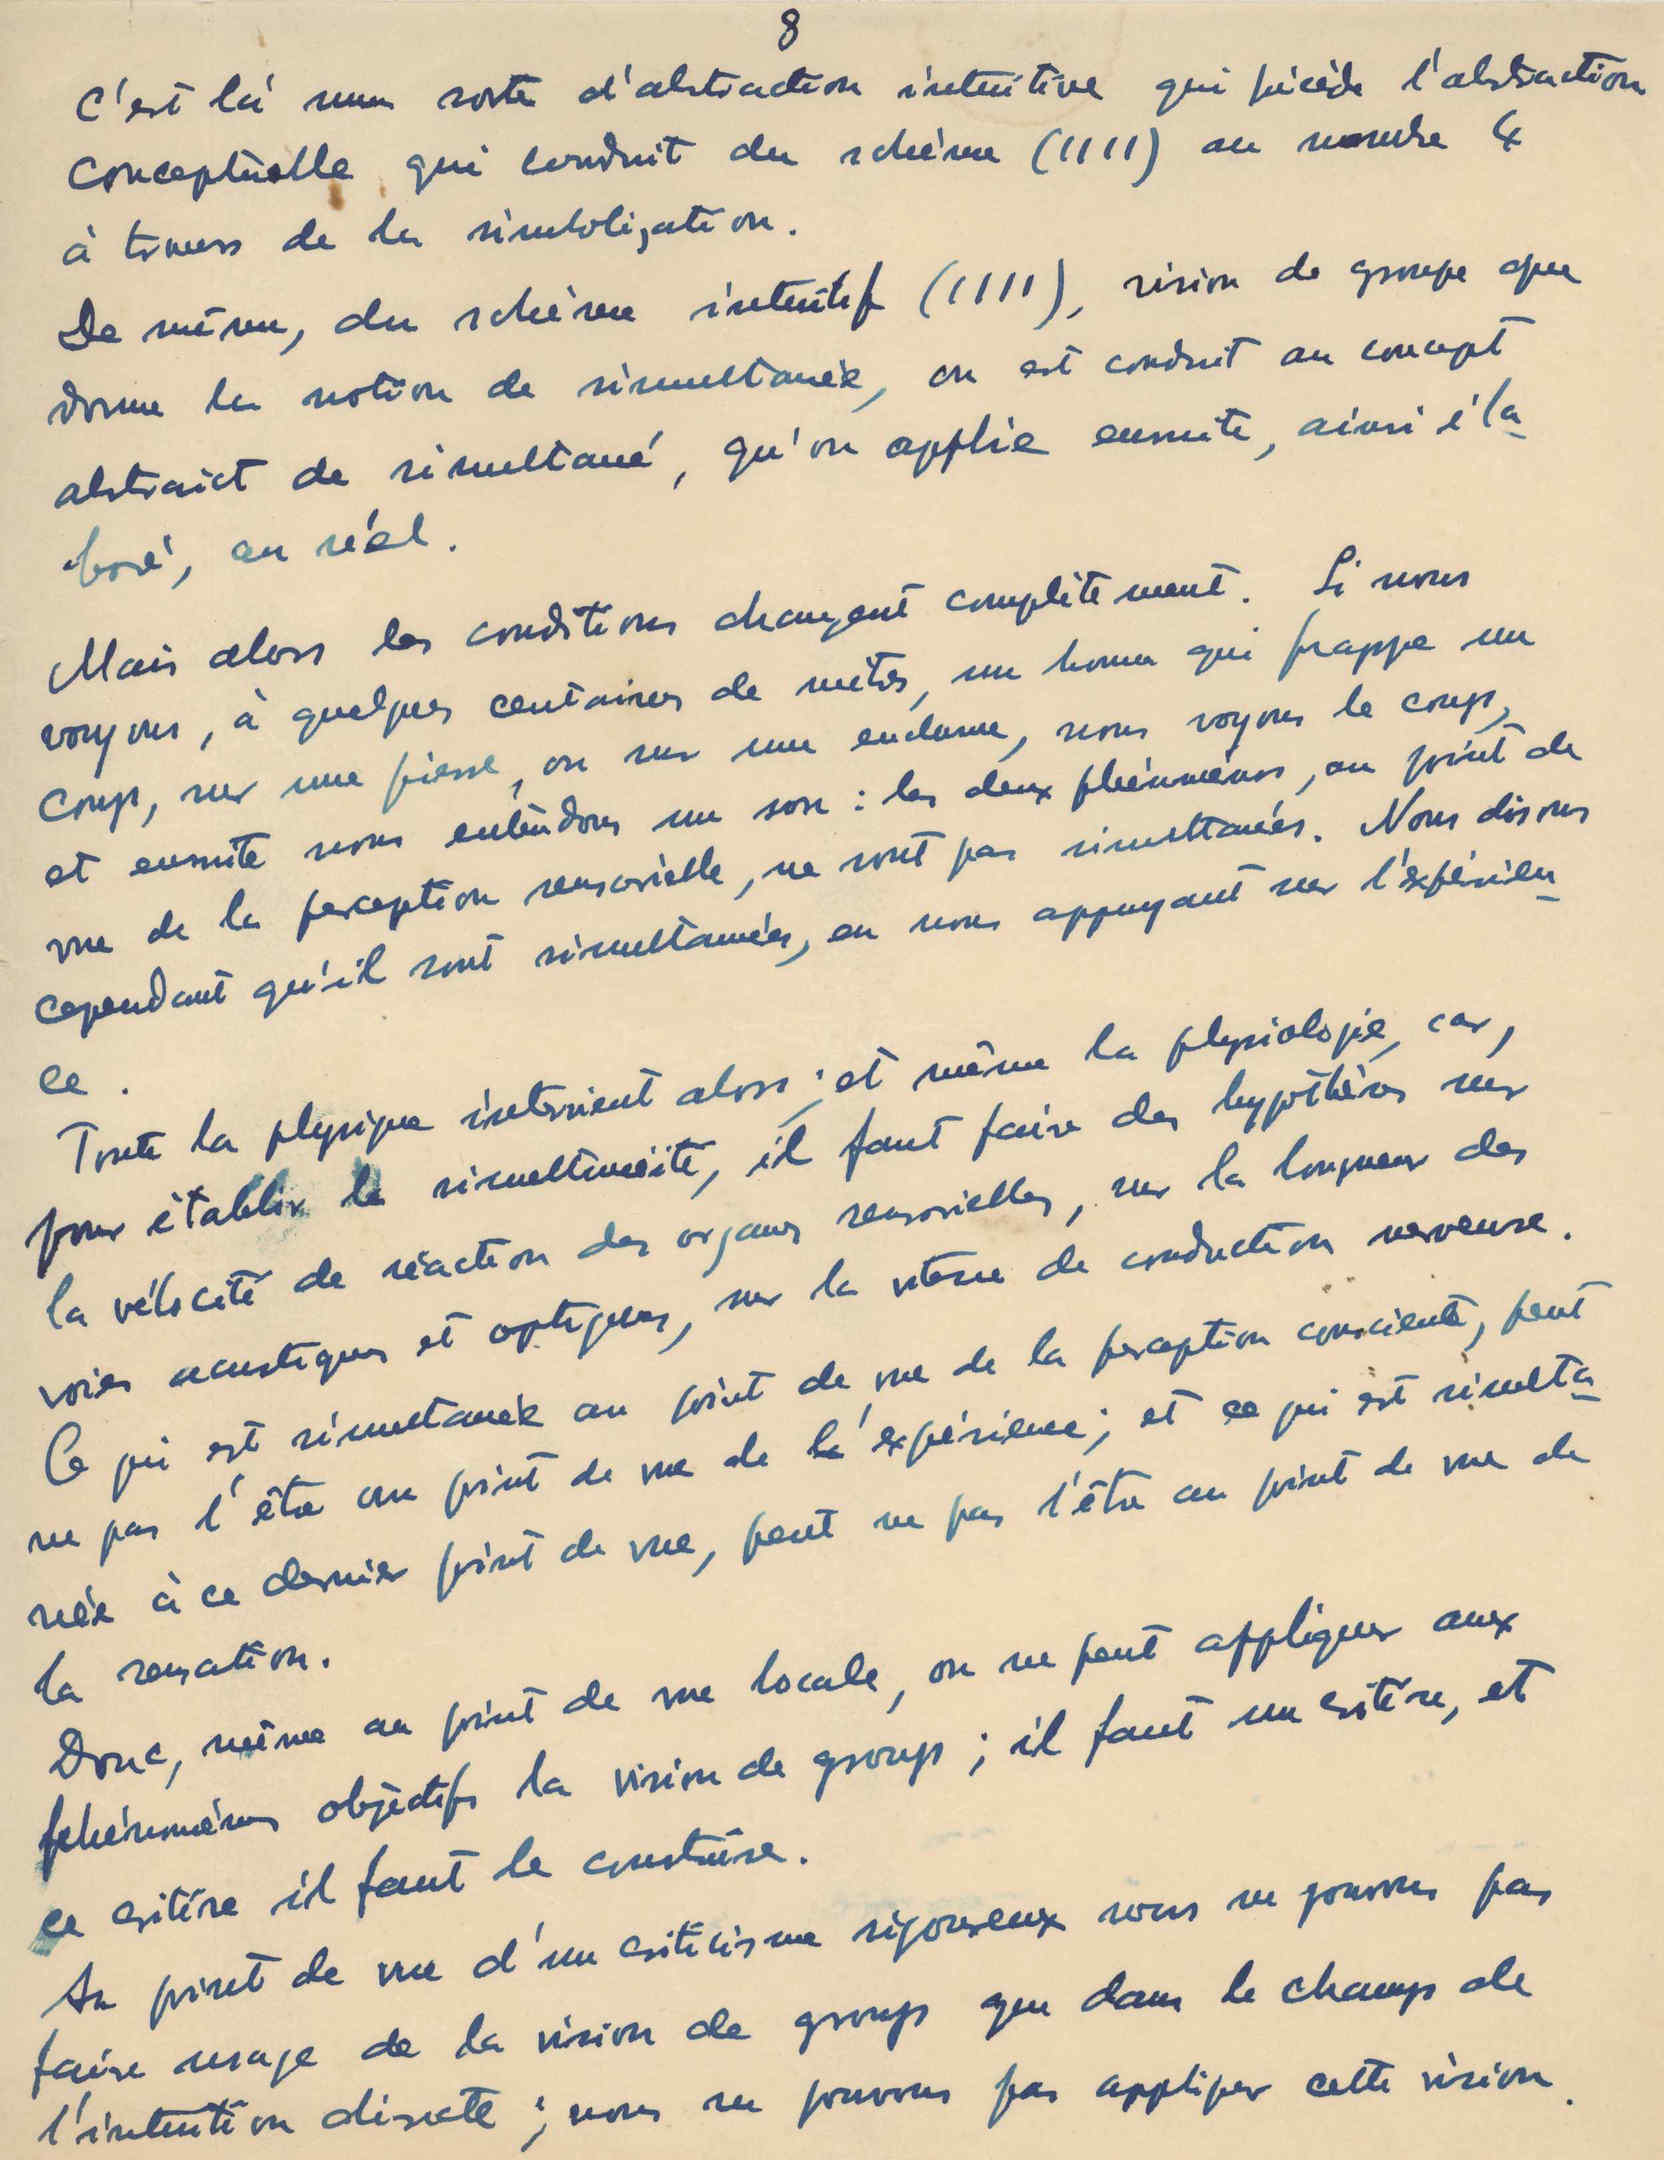 8
C'est là une sorte d'abstraction intuitive qui précède l'abstraction
conceptuelle qui conduit du schème (IIII) au nombre 4
à travers de la simbolization.
De même, du schème intuitif (IIII), vision de groupe que
donne la notion de simultanée, on est conduit au concept
abstraict de simultané, qu'on applie ensuite, ainsi éla-
boré, au réel.
Mais alors les conditions changent complètement. Si nous
voyons, à quelques centaines de mètres, un home qui frappe un
coup, sur une pierre, ou sur une enclume, nous voyons le coup,
et ensuite nous entendons un son : les deux phénomènes, au point de
vue de la perception sensorielle, ne sont pas simultanées. Nous disons
cependant qu'il sont simultanées, en nous appuyant sur l'expérien-
ce.
Toute la physique intervient alors; et même la physiologie, car,
pour établir la simultaneité, il faut faire des hypothèses sur
la vélocité de réaction des organes sensorielles, sur la longueur des
voies acustiques et optiques, sur la vitesse de conduction nerveuse.
Ce qui est simultanée au point de vue de la perception consciente, peut
ne pas l'être au point de vue de l'expérience; et ce qui est simulta-
née à ce dernier point de vue, peut ne pas l'être au point de vue de
la sensation.
Donc, même au point de vue locale, on ne peut appliquer aux
phénomènes objectifs la vision de groups; il faut un critère, et
ce critère il faut le construire.
Au point de vue d'un criticisme rigoureux nous ne pouvons pas
faire usage de la vision de groups que dans le champs de
l'intuition discrete; nous ne pouvons pas appliquer cette vision